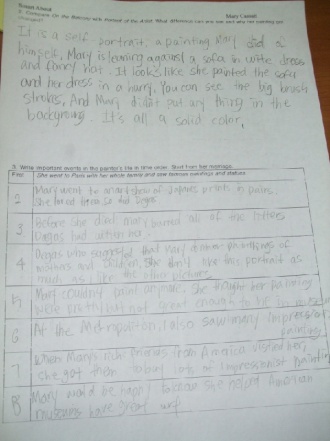 Mary Cassatt
It is a self portrait, a painting Mary did of
himself, Mary is leaning against a sofa in white dress
and fancy hat. It looks like she painted the sofa
and her dress in a hurry. You can see the big brush
strokes, And Mary didn't put any thing in the
background. It's all a solid color.
3. Write important events in the painter's life in time order. Start from her marriage.
First She went to Paris with her whole family and saw famous paintings and statues.
2 Mary went to an art show of Japanes prints in paris.
She loved them So did Degas
3 Before She died mary burned all of the letters
Degas had written her.
4 Degas who suggested that Mary do more paintings of
mothers and children. She don't like this portrait as
much as I like the other pictures.
5 Mary couldn't paint anymore. She thought her painting
were pretty but not great enough to be in
6 At the Metropolitan, I also saw many impression
painting
7 When Mary's rich friends from America visited her,
she got them to buy lots of Impressionist painting
8 Mary would be happy to know she helped American
museums have great art